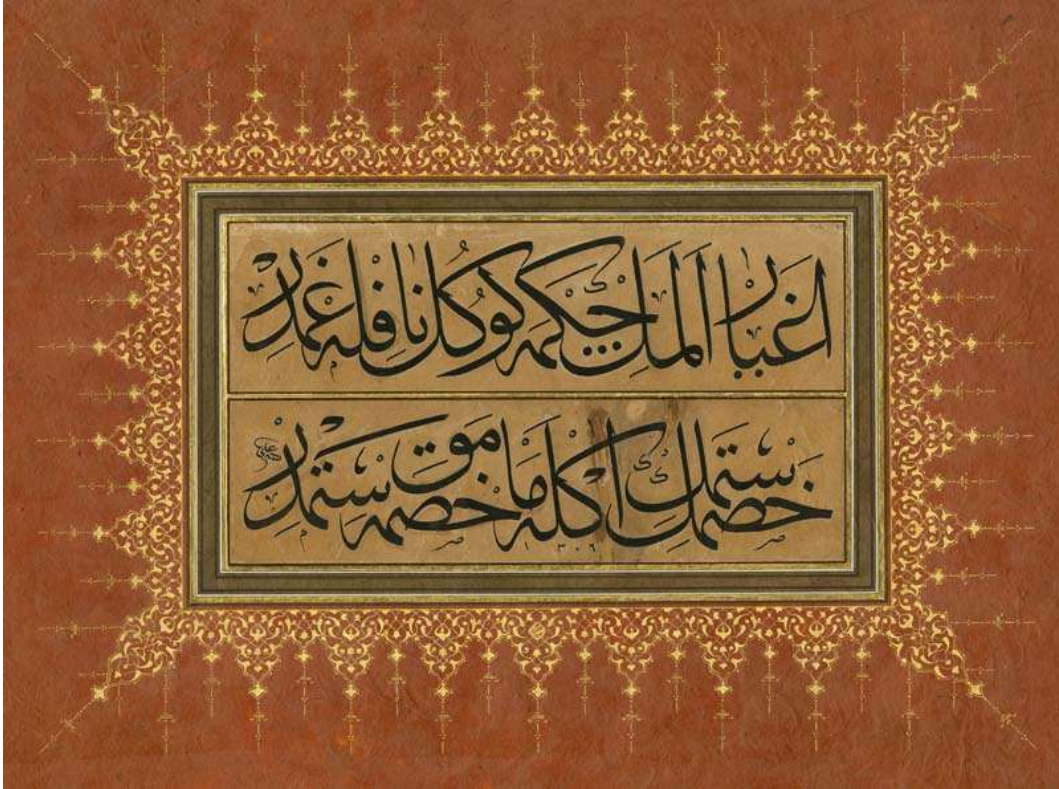 اغيار المك چكمه كوكل نافله غمدر
خصمك ستمك اكلامامق خصمه ستمدر